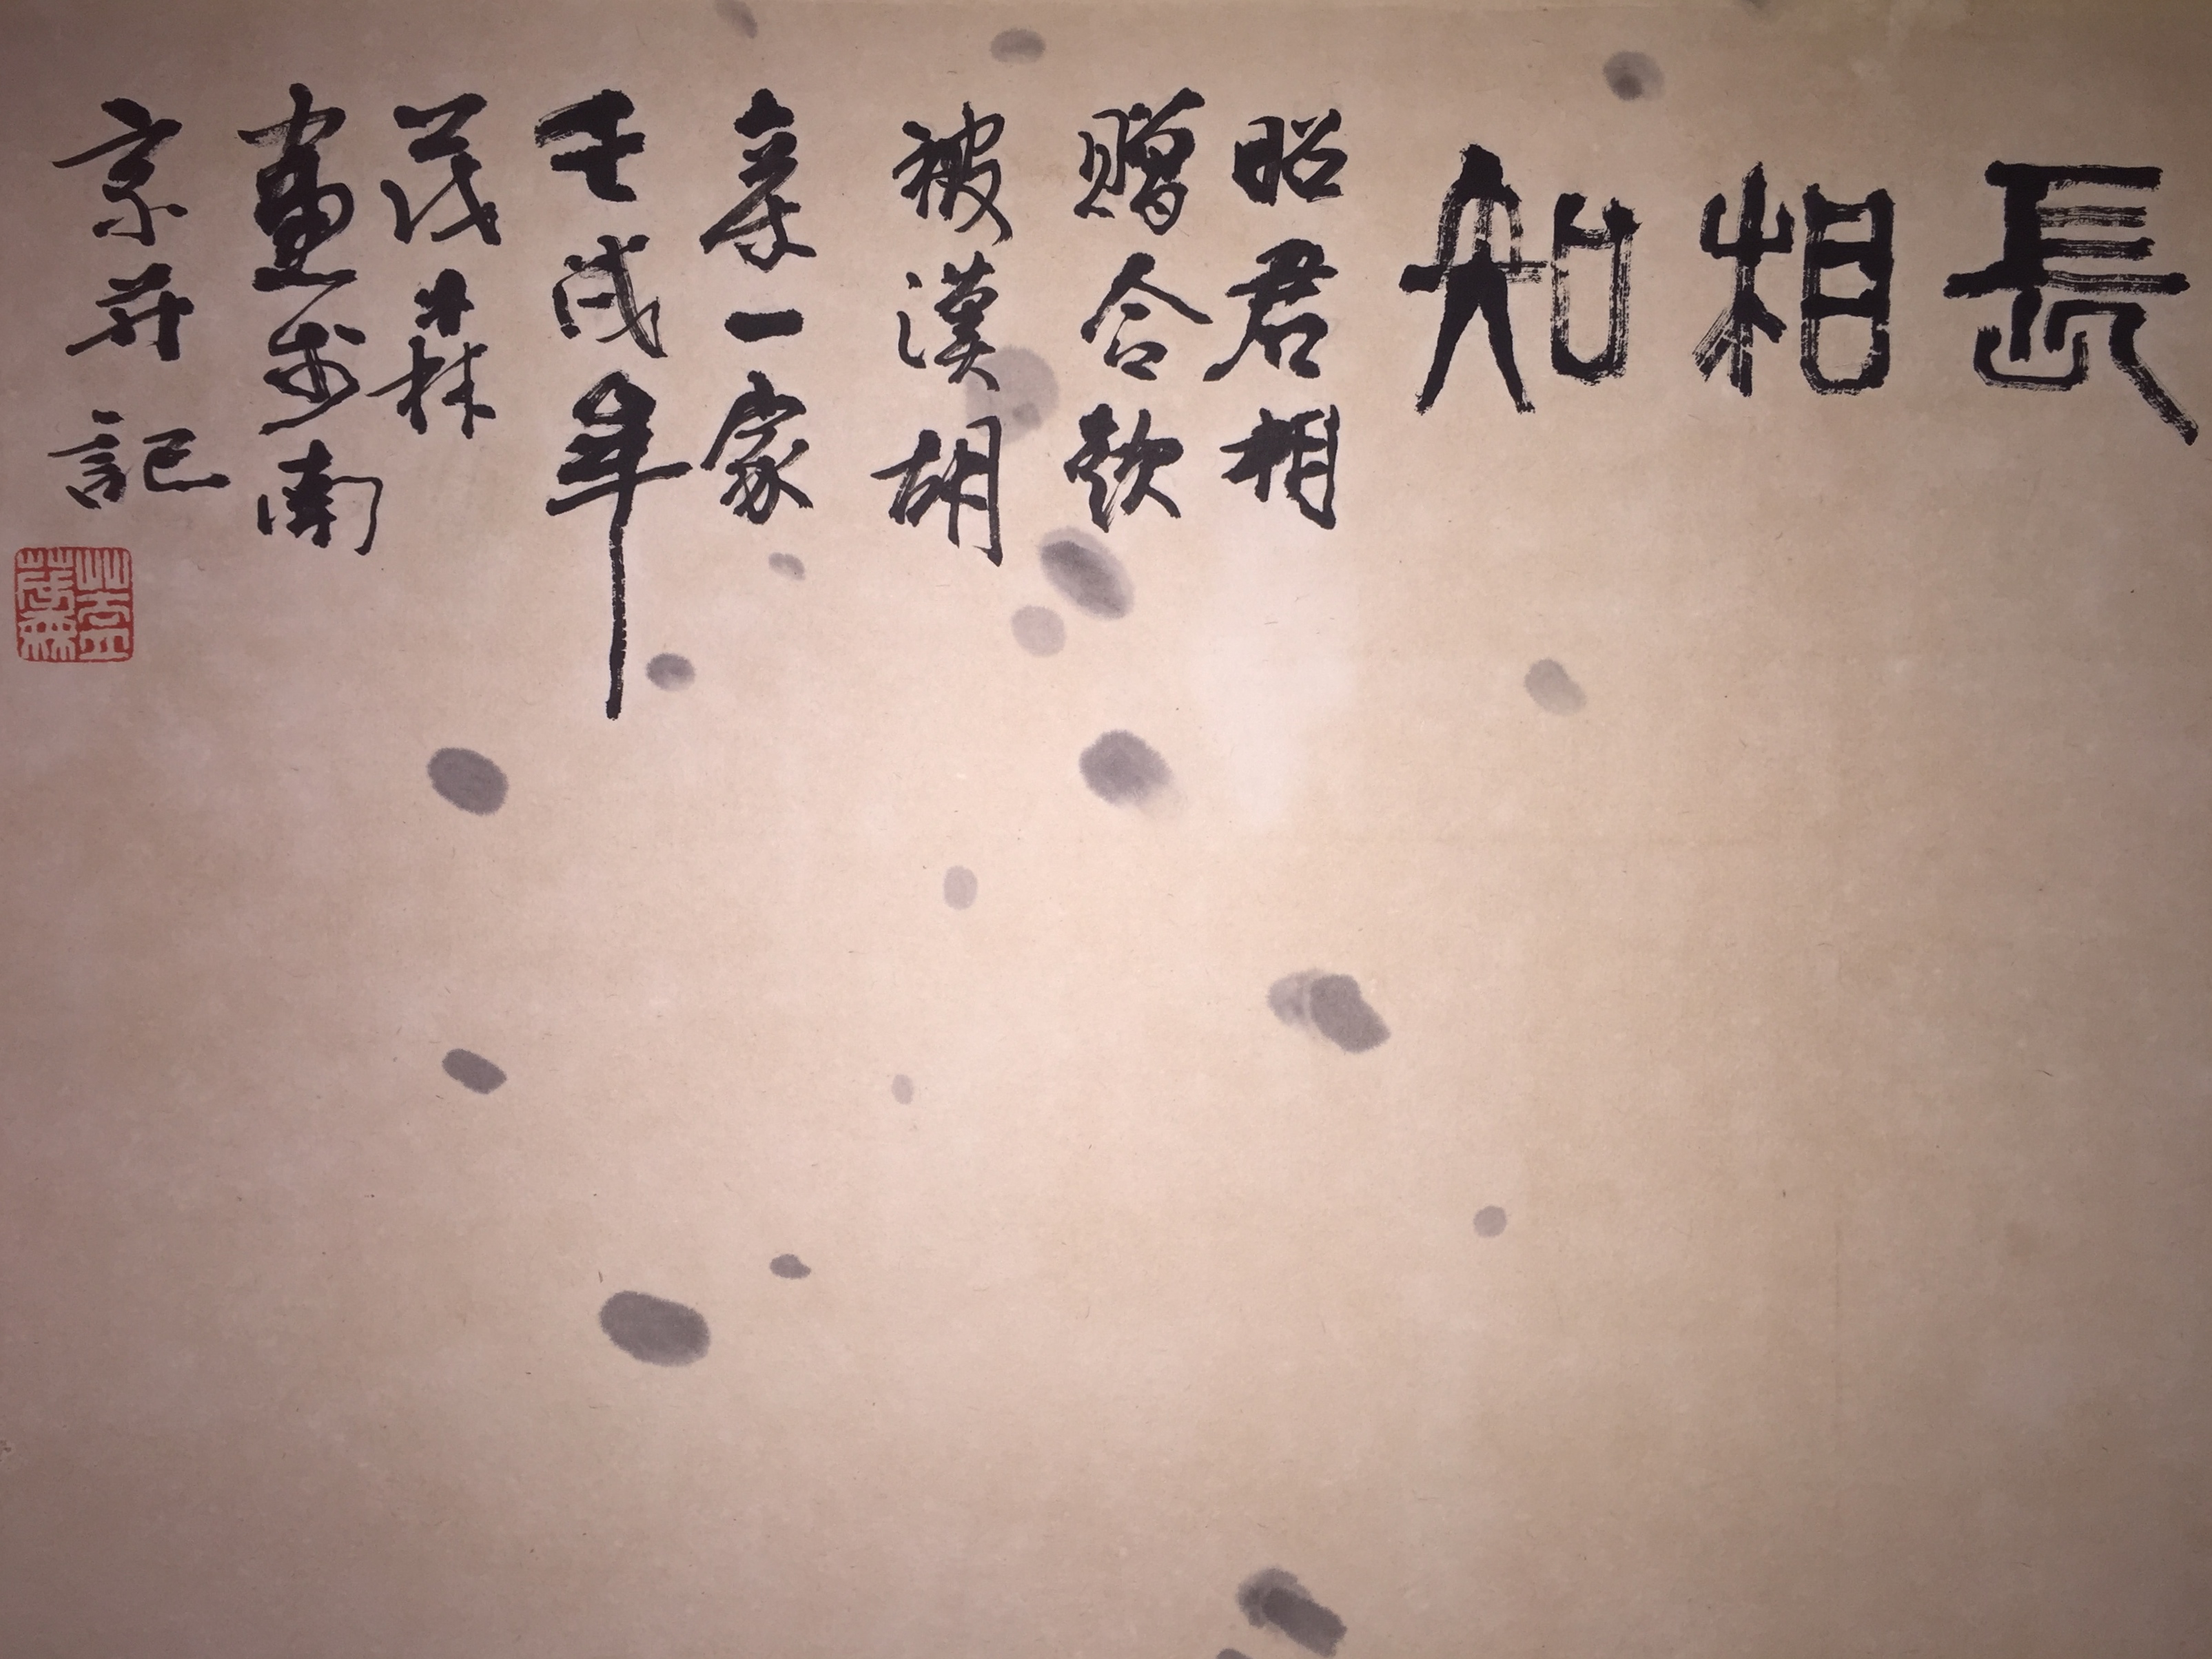 長相知
昭君相
贈合歡
被漢胡
親一家
壬戌年
茂森
畫於南
京並記